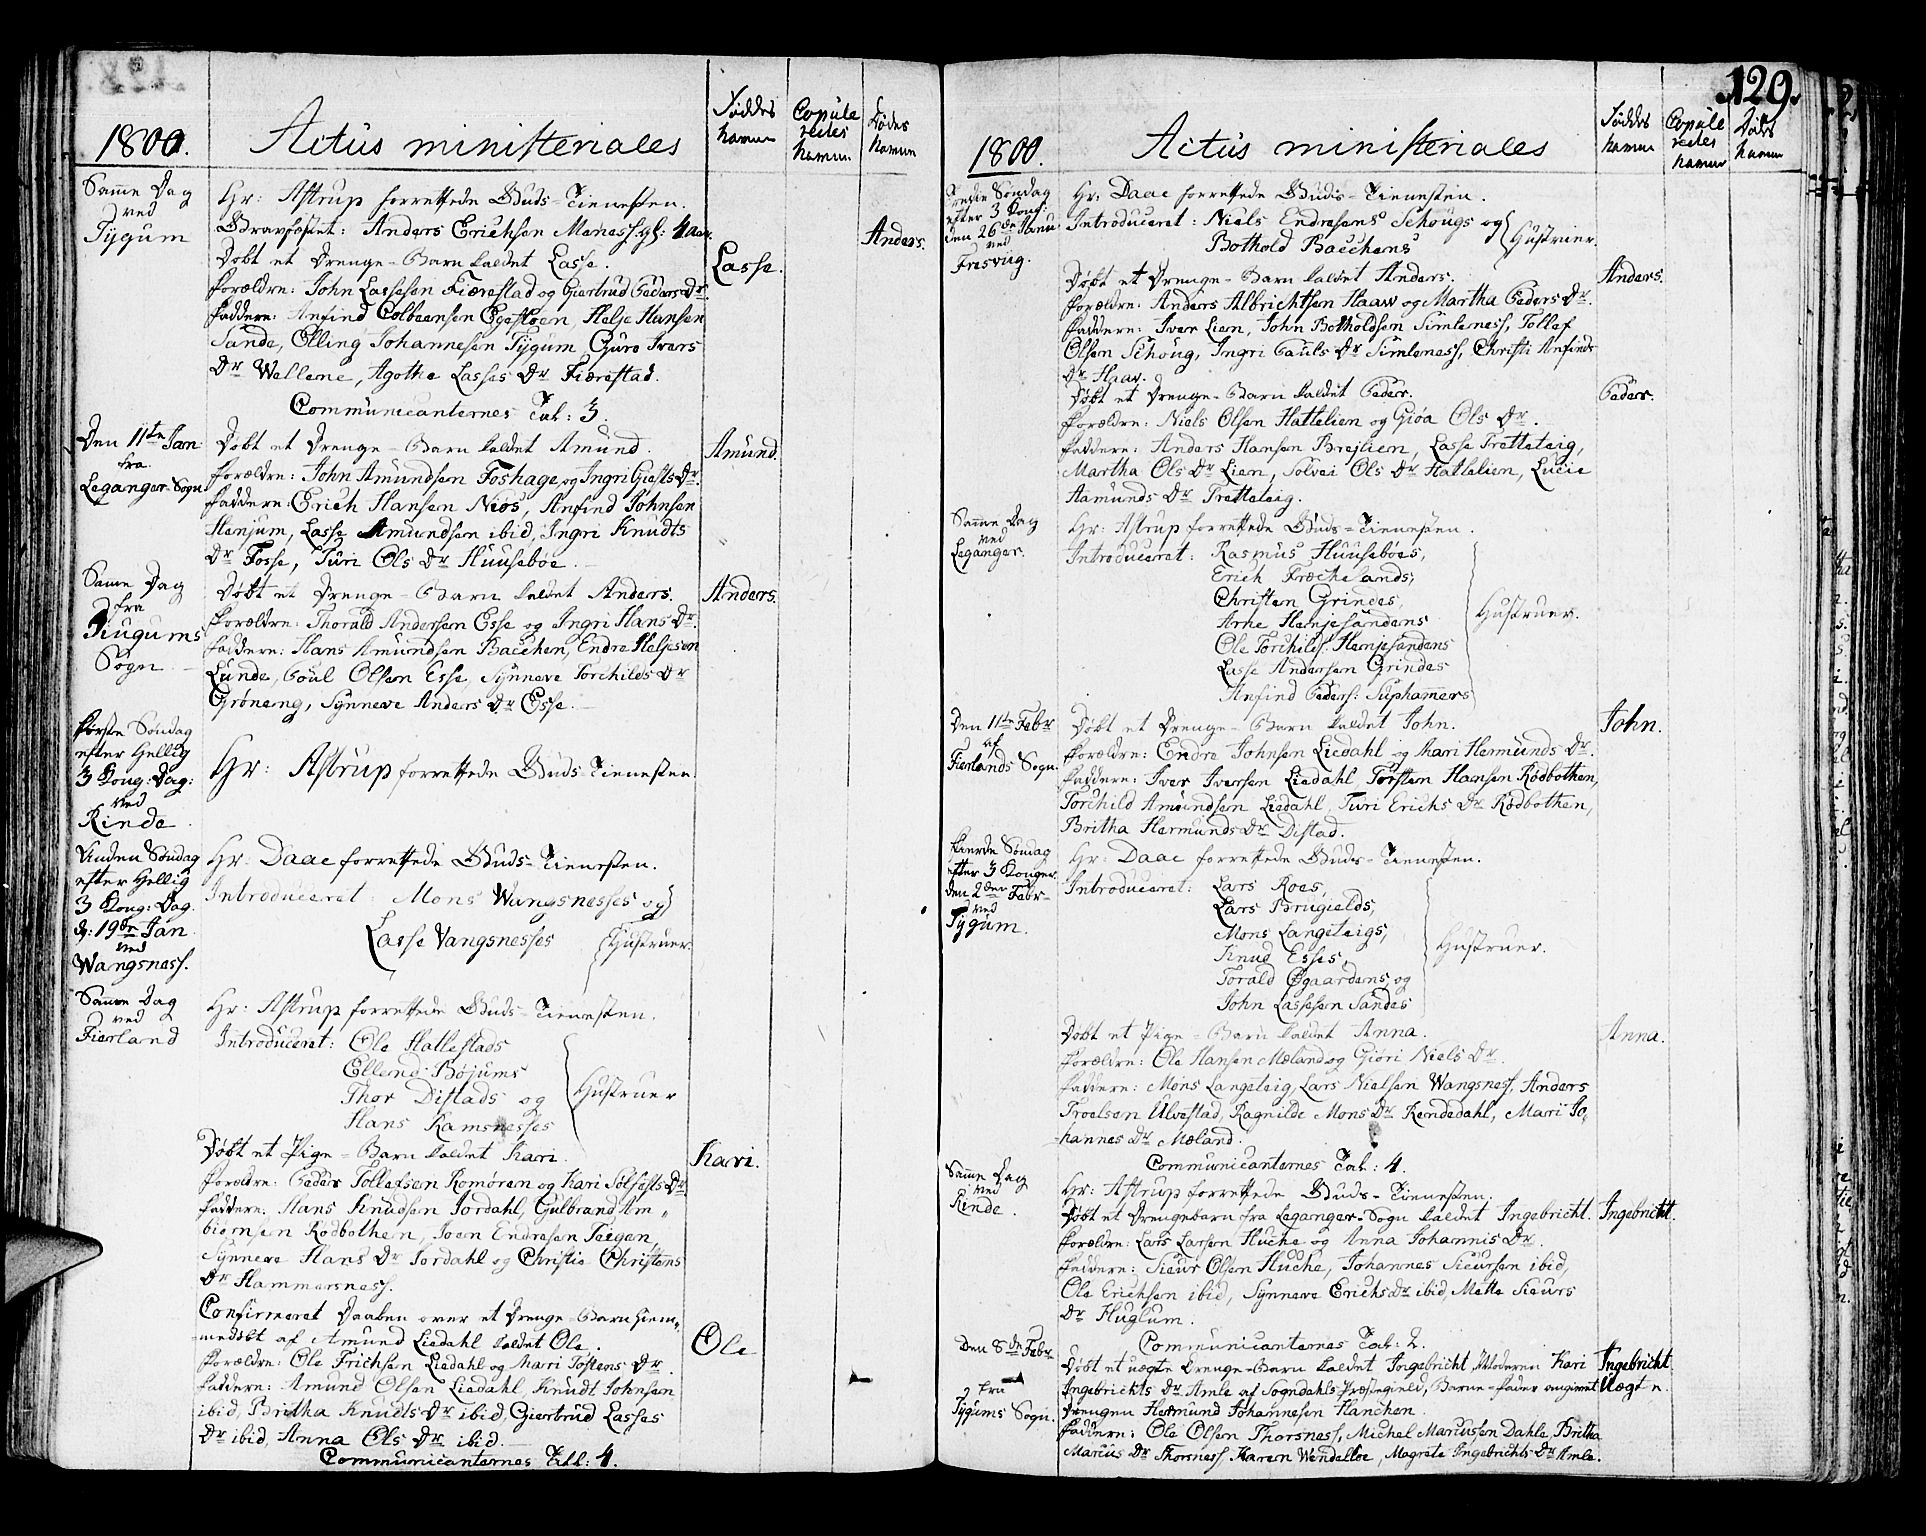 1800.
Actus ministeriales
Føddes
hamn
Copule
redes
hamn.
Dødes
hamn
Samme Dag
ved
Tygum
Hr: Astrup forrettede Guds-Tienesten.
Gravfæstet: Anders Erichsen Menæss. gl: 4 aar.
Anders.
Døbt et Drenge-Barn kaldet Lasse.
Lasse.
Forældre: John Lassesen Fiærestad og Giertrud Peders Dr.
Faddere: Anfind Colbeensen Egestøen, Helje Hansen
Sande, Elling Johannesen Tygum, Guro Ivers
Dr Wellene, Agothe Lasses Dr Fiærestad.
Communicanternes Tal: 3.
Den 11te Jan
fra
Leganger-Sogn
Døbt et Drenge-Barn kaldet Amund.
Amund.
Forældre: John Amundsen Foshage og Ingri Giests Dr.
Faddere: Erich Hansen Niøs, Anfind Johnsen
Henjum, Lasse Amundsen ibid, Ingri Knudts
Dr Fosse, Turi Ols Dr Huusebøe.
Samme Dag
fra
Tiugums
Sogn
Døbt et Drenge-Barn kaldet Anders.
Anders.
Forældre: Thorald Andersen Esse og Ingri Hans Dr.
Faddere: Hans Amundsen Bacchen, Endre Heljesen
Lunde, Poul Olsen Esse, Synneve Torchilds Dr
Grøneng, Synneve Anders Dr Esse.
Første Søndag
efter Hellig
3 Kong: Dag:
ved
Rinde
Hr: Astrup forrettede Guds-Tienesten
Anden Søndag
efter Hellig
3 Kong: Dag
d: 19de Jan
ved
Wangsness.
Hr: Daae forrettede Guds-Tienesten.
Introduceret: Mons Wangsnesses og
Lasse Vangsnesses
Hustruer.
Samme Dag
ved
Fierland
Hr: Astrup forrettede Guds-Tienesten.
Introduceret: Ole Hattestads
Ellend Bøjums
Thor Distads og
Hans Ramsnesses
Hustruer
Døbt et Pige-Barn kaldet Kari.
Kari.
Forældre: Peder Tollefsen Romøren og Kari Sølfests Dr
Faddere: Hans Knudsen Jordahl, Gulbrand Am-
biørnsen Rødbotten, Joen Endresen Teigen,
Synneve Hans Dr Jordahl og Christie Christens
Dr Hammersness.
Confirmeret Daaben over et Drenge-Barn hiem-
medøbt af Amund Liedahl kaldet Ole.
Ole
Forældre: Ole Erichsen Liedahl og Mari Tostens Dr.
Faddere: Amund Olsen Liedahl, Knudt Johnsen
ibid, Britha Knudts Dr ibid, Giertrud Lasses
Dr ibid, Anna Ols Dr ibid.
Communicanternes Tal: 4.
129.
1800.
Actus ministeriales
Føddes
hamn
Copule
redes
hamn
Døds
hamn
Tredie Søndag
efter 3 Kong:
den 26de Janu
ved
Fresvig.
Hr: Daae forrettede Guds-Tienesten.
Introduceret: Niels Endresens Schougs og
Bothold Bacchens
Hustruer.
Døbt et Drenge-Barn kaldet Anders.
Anders.
Forældre: Anders Albrichtsen Haaw og Martha Peders Dr.
Faddere: Iver Lien, John Botholdsen Simleness, Tollef
Olsen Schoug, Ingri Pauls Dr Simleness, Christi Anfinds
Dr Haav.
Døbt et Drenge-Barn kaldet Peder.
Peder.
Forældre: Niels Olsen Hattelien og Giøa Ols Dr.
Faddere: Anders Hansen Brejlien, Lasse Tretteteig,
Martha Ols Dr Lien, Solvei Ols Dr Hattelien, Lucie
Aamunds Dr Tretteteig.
Samme Dag
ved
Leganger.
Hr: Astrup forrettede Guds-Tienesten.
Introduceret: Rasmus Huusebøes,
Erich Frøchelands,
Christen Grindes,
Arne Henjesandens
Ole Torchilds: Henjesandens
Lasse Andersen Grindes
Anfind Peders: Suphamers
Hustruer.
Den 11te Febr
af
Fierlands Sogn
Døbt et Drenge-Barn kaldet John.
John.
Forældre: Endre Johnsen Liedahl og Mari Hermunds Dr.
Faddere: Iver Iversen Liedahl, Torsten Hansen Rødbotten,
Torchild Amundsen Liedahl, Turi Erichs Dr Rødbotten,
Britha Hermunds Dr Distad.
Fierde Søndag
efter 3 Konger
den 2den Febr-
ved
Tygum.
Hr: Daae forrettede Guds-Tienesten.
Introduceret: Lars Roes,
Lars Brugields,
Mons Langeteigs,
Knud Esses,
Torald Øgaardens, og
John Lassesen Sandes
Hustruer.
Døbt et Pige-Barn kaldet Anna.
Anna.
Forældre: Ole Hansen Mæland og Giøri Niels Dr.
Faddere: Mons Langeteig, Lars Nielsen Wangsness, Anders
Troelsen Ulvestad, Ragnilde Mons Dr Rendedahl, Mari Jo-
hannes Dr Mæland.
Communicanternes Tal: 4.
Samme Dag
ved
Rinde.
Hr: Astrup forrettede Guds-Tienesten.
Døbt et Drengebarn fra Leganger-Sogn kaldet Ingebricht.
Ingebricht.
Forældre: Lars Larsen Huche og Anna Johannis Dr.
Faddere: Sieur Olsen Huche, Johannes Sieursen ibid,
Ole Erichsen ibid, Synneve Erichs Dr ibid, Mette Sieurs
Dr Huglum.
Communicanternes Tal: 2.
Den 8de Febr
fra
Tygums Sogn.
Døbt et uægte Drenge-Barn kaldet Ingebricht, Moderen Kari
Ingebricht.
Ingebrichts Dr Amle af Sogndahls Præstegield, Barne-Fader angivet
Uægte.
Drengen Hermund Johannesen Hanchen.
Faddere: Ole Olsen Thorsness, Michel Marcussen Dahle, Britha
Marcus Dr Thorsness, Karen Wendelboe, Magrete Ingebrichts Dr Amle.